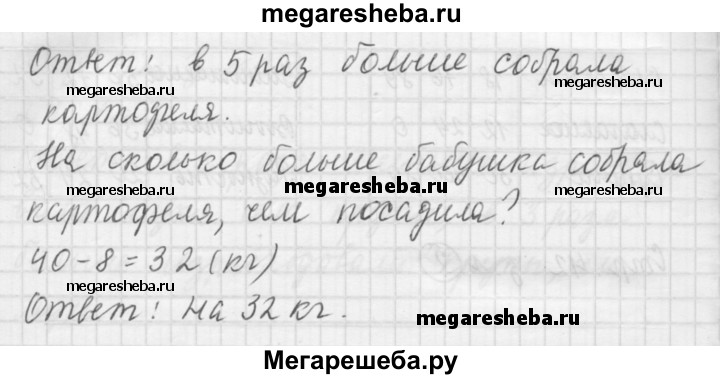 megaresheba.ru
Ответ: в 5 раз больше собрала
megaresheba.ru megaresheba.ru
картофеля.
На сколько больше бабушка собрала
megaresheba.ru megaresheba.ru megaresheba.ru
картофеля, чем посадила?
40-8=32(кг)
megaresheba.ru
Ответ: на 32 кг.
megaresheba.ru
Мегарешеба.ру